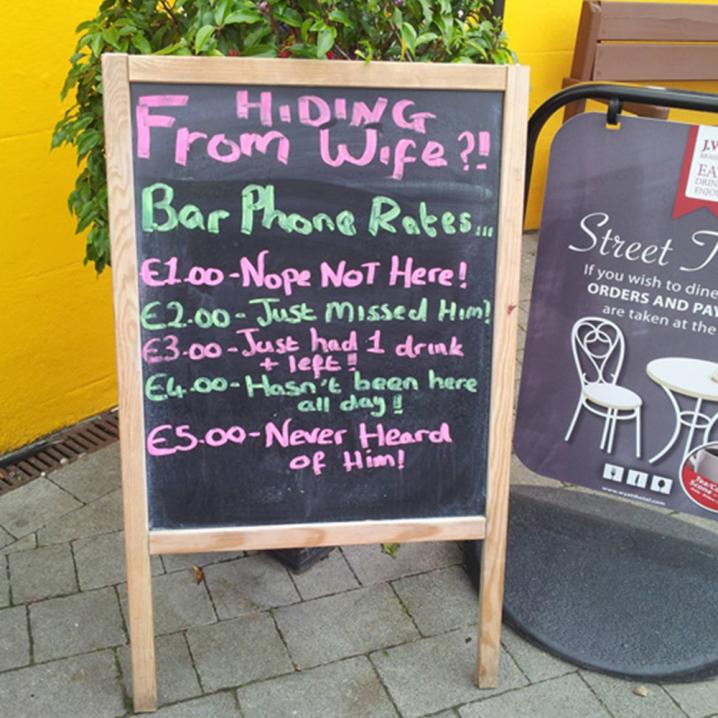 HIDING
From Wife?!
Bar Phone Rates...
€1.00-Nope NOT Here!
€2.00-Just Missed Him!
€3.00-Just had 1 drink
+ left!!
€4.00-Hasn't been here
all day!!
€5.00-Never Heard
of Him!
J.W
EA
DRIN
ENJOY
Street T
If you wish to dine
ORDERS AND PAY
are taken at the